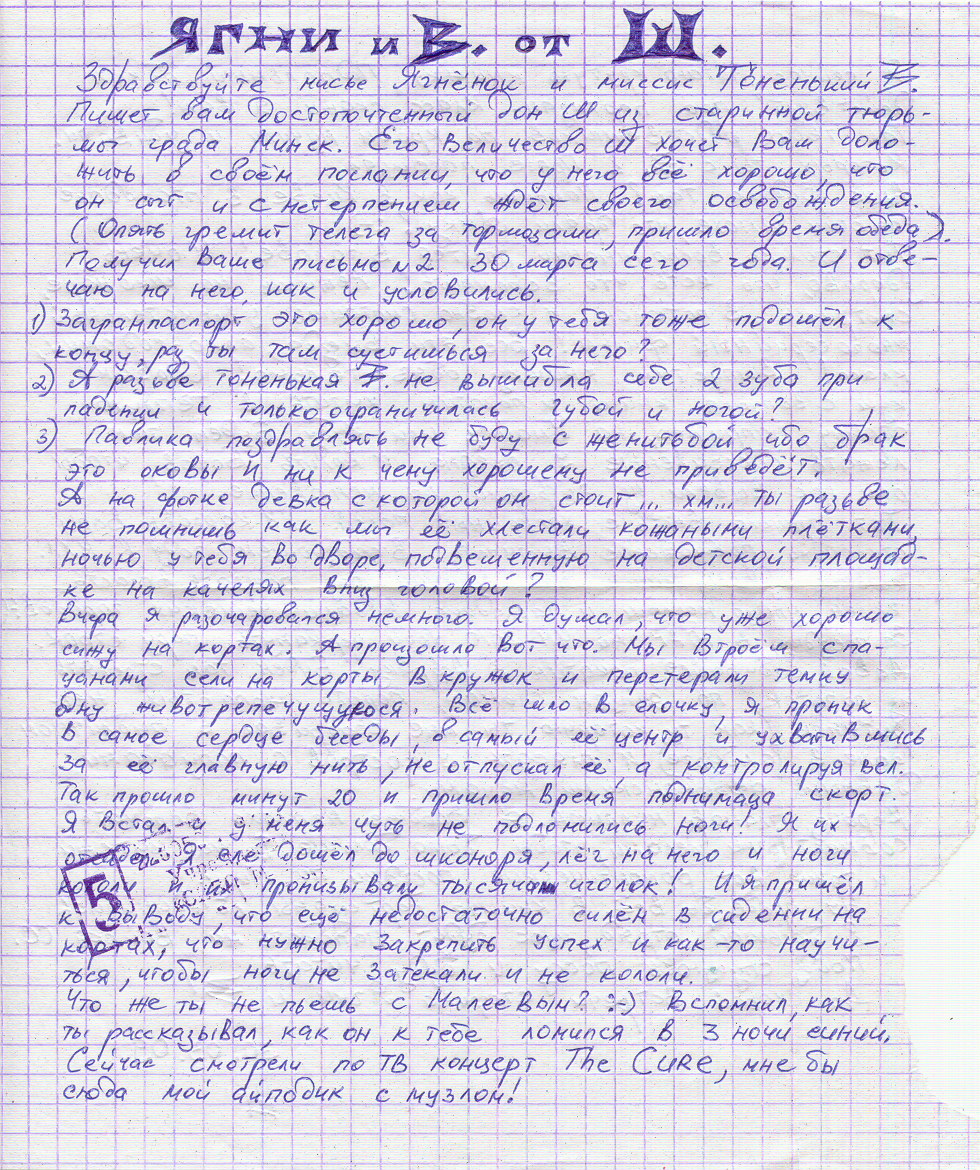 ЯГНИ и В. от Ш.
Здравствуйте мисье Ягнёнок и миссис Тоненький В.
Пишет вам достопочтенный дон Ш из старинной тюрь-
мы града Минск. Его Величество Ш хочет Вам доло-
жить в своём послании, что у него всё хорошо, что
он сыт и с нетерпением ждёт своего освобождения.
(Опять гремит телега за тормозами, пришло время обеда).
Получил Ваше письмо №2 30 марта сего года. И отве-
чаю на него, как и условились.
1) Загранпаспорт это хорошо, он у тебя тоже подошёл к
концу, раз ты там суетишься за него?
2) А разьве тоненькая В. не вышибла себе 2 зуба при
падении и только ограничилась губой и ногой?
3) Павлика поздравлять не буду с женитьбой, ибо брак
это оковы и ни к чему хорошему не приведёт.
А на фотке девка с которой он стоит... хм... ты разьве
не помнишь как мы её хлестали кожаными плётками
ночью у тебя во дворе, подвешенную на детской площад-
ке на качелях вниз головой?
Вчера я разочаровался немного. Я думал, что уже хорошо
сижу на кортах. А произошло вот что. Мы втроём с па-
цанами сели на корты в кружок и перетерали темку
одну животрепечущуюся. Всё шло в ёлочку, я проник
в самое сердце беседы, в самый её центр и ухватившись
за её главную нить, не отпускал её, а контролируя вёл.
Так прошло минут 20 и пришло время поднимаца скорт.
Я встал и у меня чуть не подломились ноги! Я их
отсидел. Я еле дошёл до шконаря, лёг на него и ноги
кололи и их пронизывали тысячами иголок! И я пришёл
к выводу, что ещё недостаточно силён в сидении на
кортах, что нужно закрепить успех и как-то научи-
ться, чтобы ноги не затекали и не кололи.
Что же ты не пьешь с Малеевым? :-) Вспомнил, как
ты рассказывал, как он к тебе ломился в 3 ночи синий.
Сейчас смотрели по ТВ концерт The Cure, мне бы
сюда мой айподик с музлом!
5